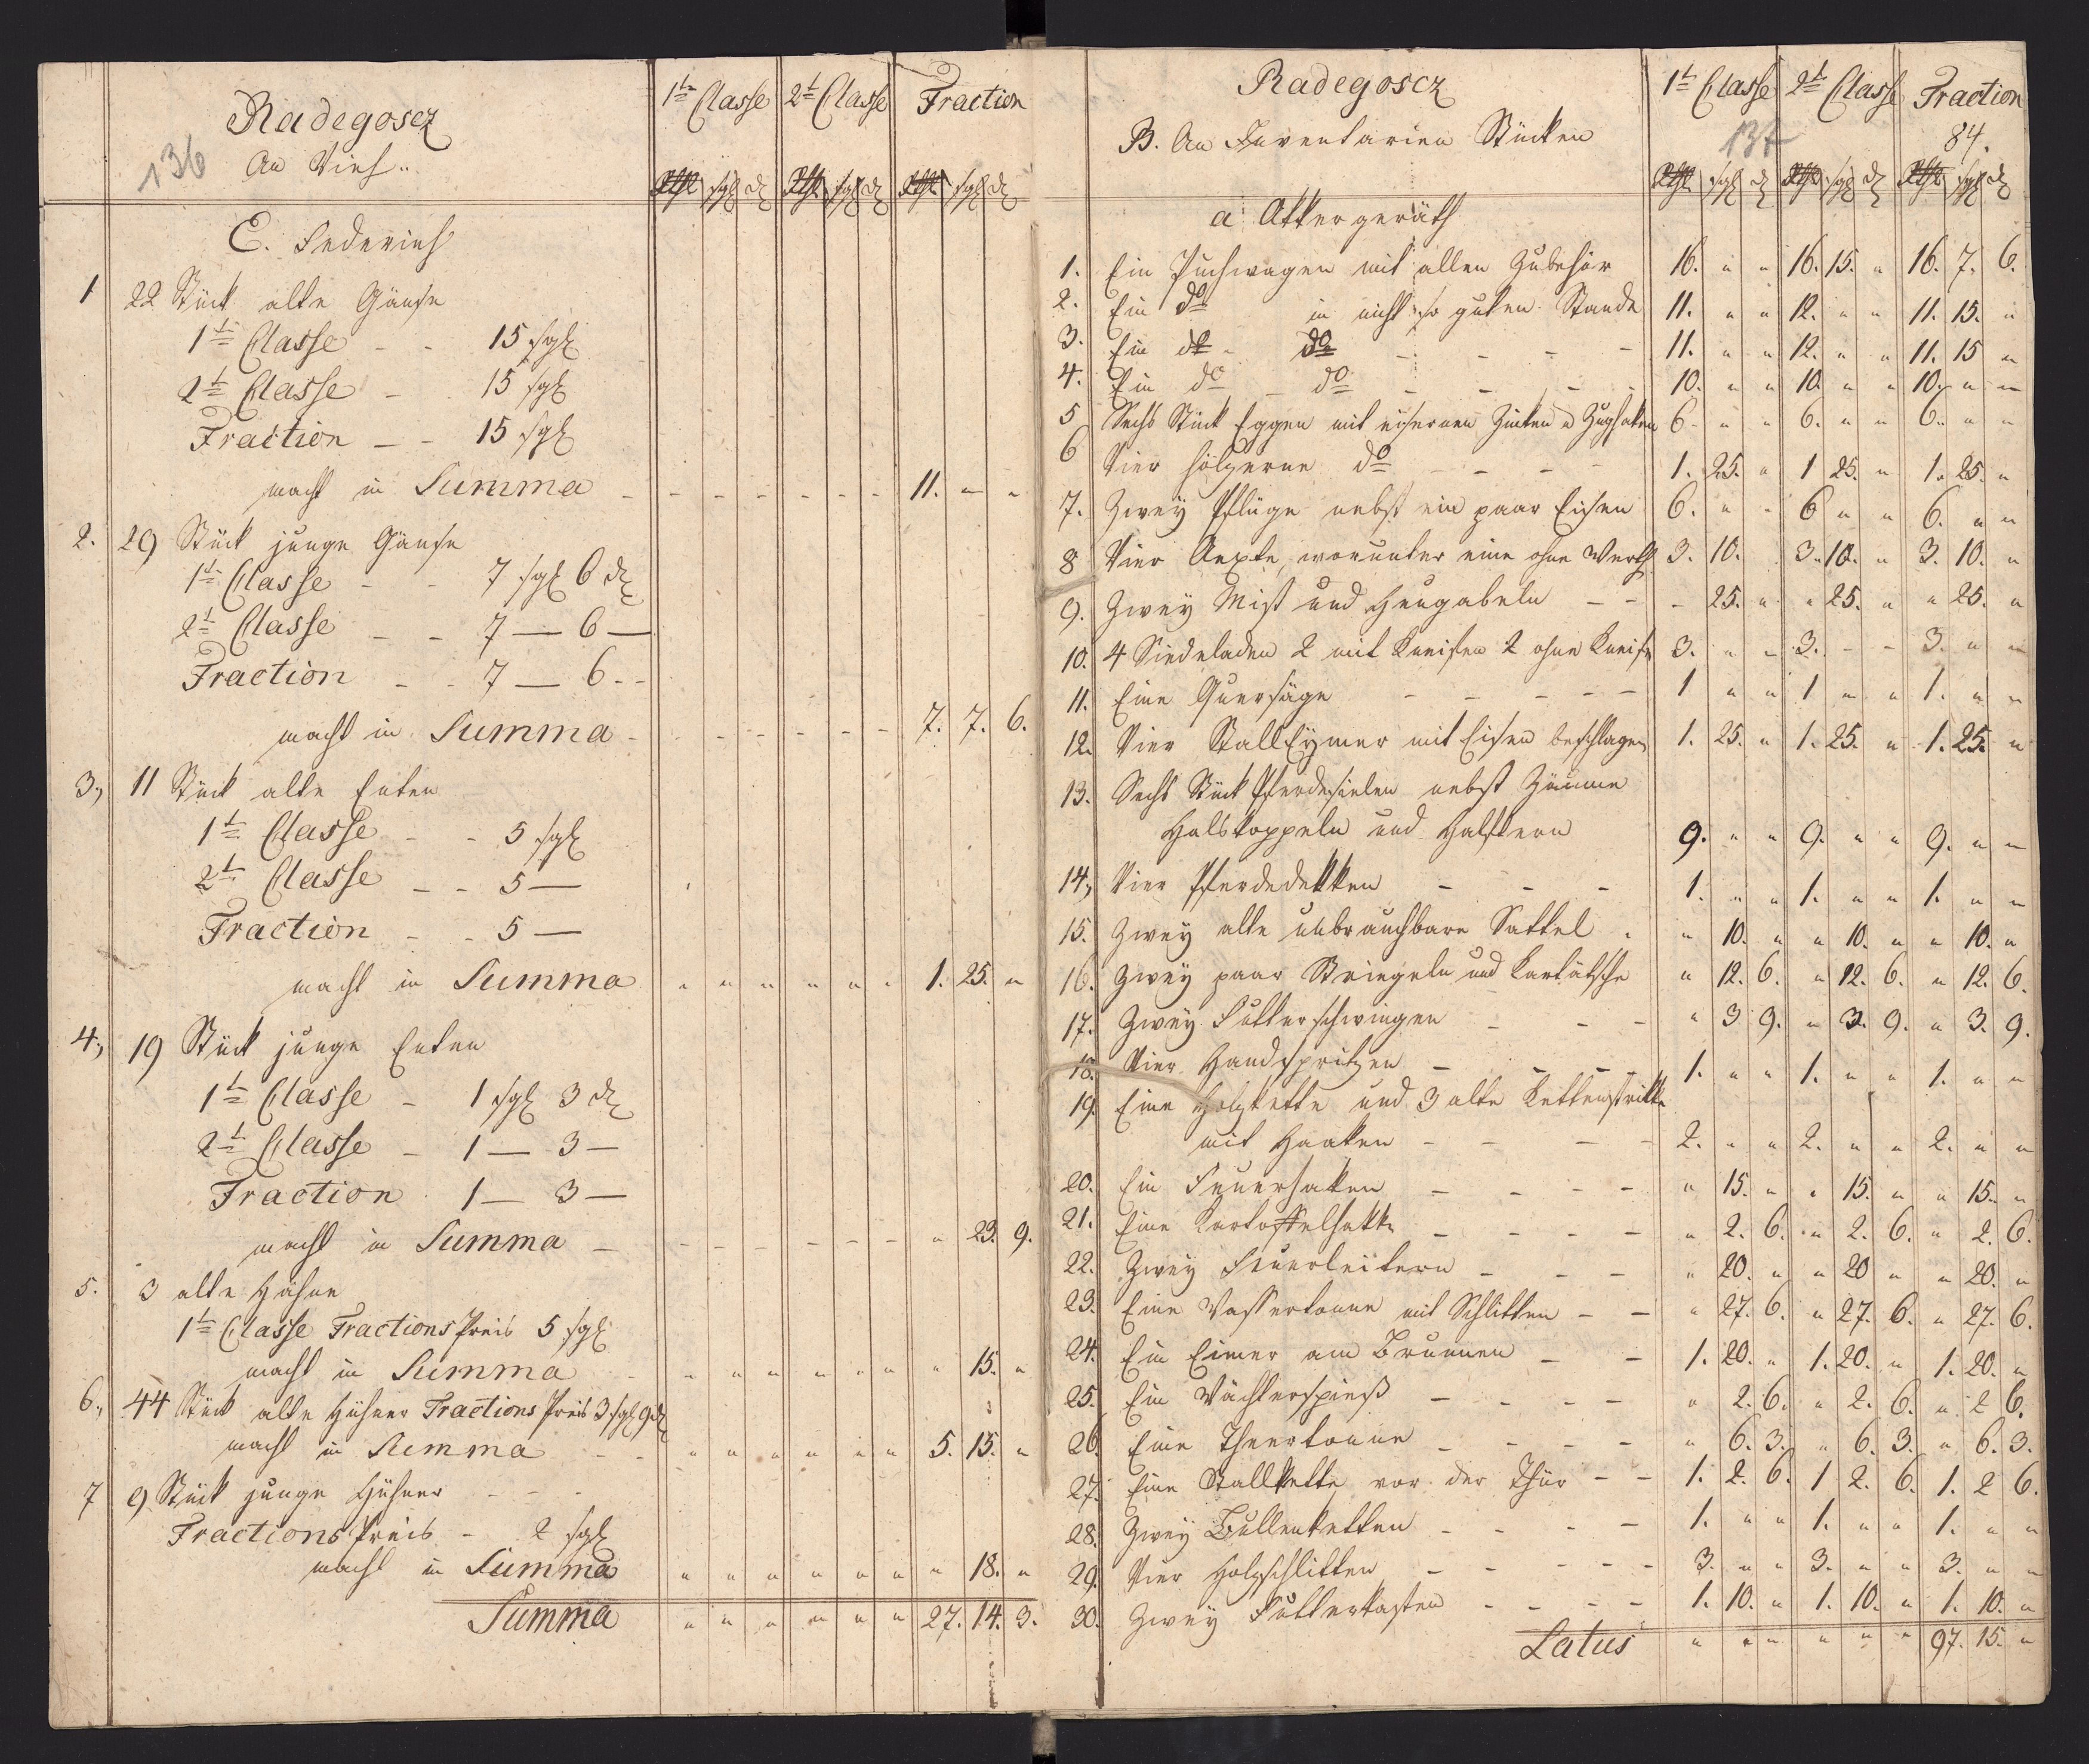 Radegoscz
An Vieh.
136
1te Classe 2te Classe Fraction
Rthl sgl d Rthl sgl d Rthl sgl d
C. Federvieh
1 22 Stück alte Gänse
1te Classe - - 15 sgl
2te Classe - - 15 sgl
Fraction - - 15 sgl
macht in Summa - - - - - - - 11. - -
2. 29 Stück junge Gänse
1te Classe - - 7 sgl 6 d
2te Classe - - 7 — 6 —
Fraction - - 7 — 6 - -
macht in Summa - - - - - - - 7. 7. 6.
3, 11 Stück alte Enten
1te Classe - - 5 sgl
2te Classe - - 5 —
Fraction - - 5 —
macht in Summa " " " " " " 1. 25. "
4, 19 Stück junge Enten
1te Classe - 1 sgl 3 d
2te Classe - 1 — 3 —
Fraction 1 — 3 —
macht in Summa - - - - - - - " 23. 9.
5. 3 alte Hähne
1te Classe Fractions Preis 5 sgl
macht in Summa " " " " " " " 15. "
6., 44 Stück alte Hühner Fractions Preis 3 sgl 9 d
macht in Summa - - " " " " " " 5. 15. "
7 9 Stück junge Hühner - - -
Fractions Preis - 2 sgl
macht in Summa " " " " " " " 18. "
Summa " " " " " " 27. 14. 3.
Radegoscz
B. An Inventarien Stücken
1te Classe 2te Classe Fraction
137 84.
Rthl sgl d Rthl sgl d Rthl sgl d
a. Akkergeräth
1. Ein Puschwagen mit allen Zubehör 16. " " 16. 15. " 16. 7. 6.
2. Ein do in nicht so guten Stande 11. " " 12. " " 11. 15. "
3. Ein do - do - - - - 11. " " 12. " " 11. 15 "
4. Ein do - do - - - - 10. " " 10. " " 10. " "
5 Sechs Stück Eggen mit eisernen Zinken u Zughaken 6 - " " 6. " " 6. " "
6 Vier hölzerne do - - - - 1. 25. " 1 25. " 1. 25. "
7. Zwey Pflüge nebst ein paar Eisen 6. " " 6 " " 6. " "
8 Vier Aexte, worunter eine ohne Werth 3. 10. 3. 10. " 3. 10. "
9. Zwey Mist und Heugabeln - - - 25. " " 25. " " 25. "
10. 4 Siedeladen 2 mit Kneifen 2 ohne Kneife 3. " " 3. - - 3. " "
11. Eine Quersäge - - - - - 1 " " 1 " " 1. " "
12. Vier StallEymer mit Eisen beschlagen 1. 25. " 1. 25. " 1. 25. "
13. Sechs Stück Pferdesielen nebst Zäume
Halskoppeln und Halftern 9. " " 9. " " 9. " "
14, Vier Pferdedekken - - - 1. " " 1. " " 1. " "
15. Zwey alte unbrauchbare Sattel . " 10. " " 10. " " 10. "
16. Zwey paar Striegeln und Kartätsche " 12. 6. " 12. 6. " 12. 6.
17. Zwey Futterschwingen - - - " 3 9. " 3. 9. " 3. 9.
18. Vier Handspritzen - - - 1. " " 1. " " 1. " "
19. Eine Holzkette und 3 alte Kettenstrikke
mit Haaken - - - - 2. " " 2. " " 2. " "
20. Ein Feuerhaken - - - - " 15. " " 15. " " 15. "
21. Eine Kartoffelhakke - - - - " 2. 6. " 2. 6. " 2. 6.
22. Zwey Feuerleitern - - - " 20. " " 20 " " 20. "
23. Eine Wassertonne mit Schlitten - - " 27. 6. " 27. 6. " 27. 6.
24. Ein Eimer am Brunnen - - 1. 20. " 1. 20. " 1. 20. "
25. Ein Wächterspieß - - - - " 2. 6. " 2. 6. " 2 6.
26. Eine Theertonne - - - - " 6. 3. " 6. 3. " 6. 3.
27. Eine Stallkette vor der Thür - - 1. 2. 6. 1 2. 6. 1. 2 6.
28. Zwey Bullenketten - - - - 1. " " 1. " " 1. " "
29. Vier Holzschlitten - - - - - 3. " " 3. " " 3. " "
30. Zwey Futterkasten - - - - 1. 10. " 1. 10. " 1. 10. "
Latus " " " " " " 97. 15. "